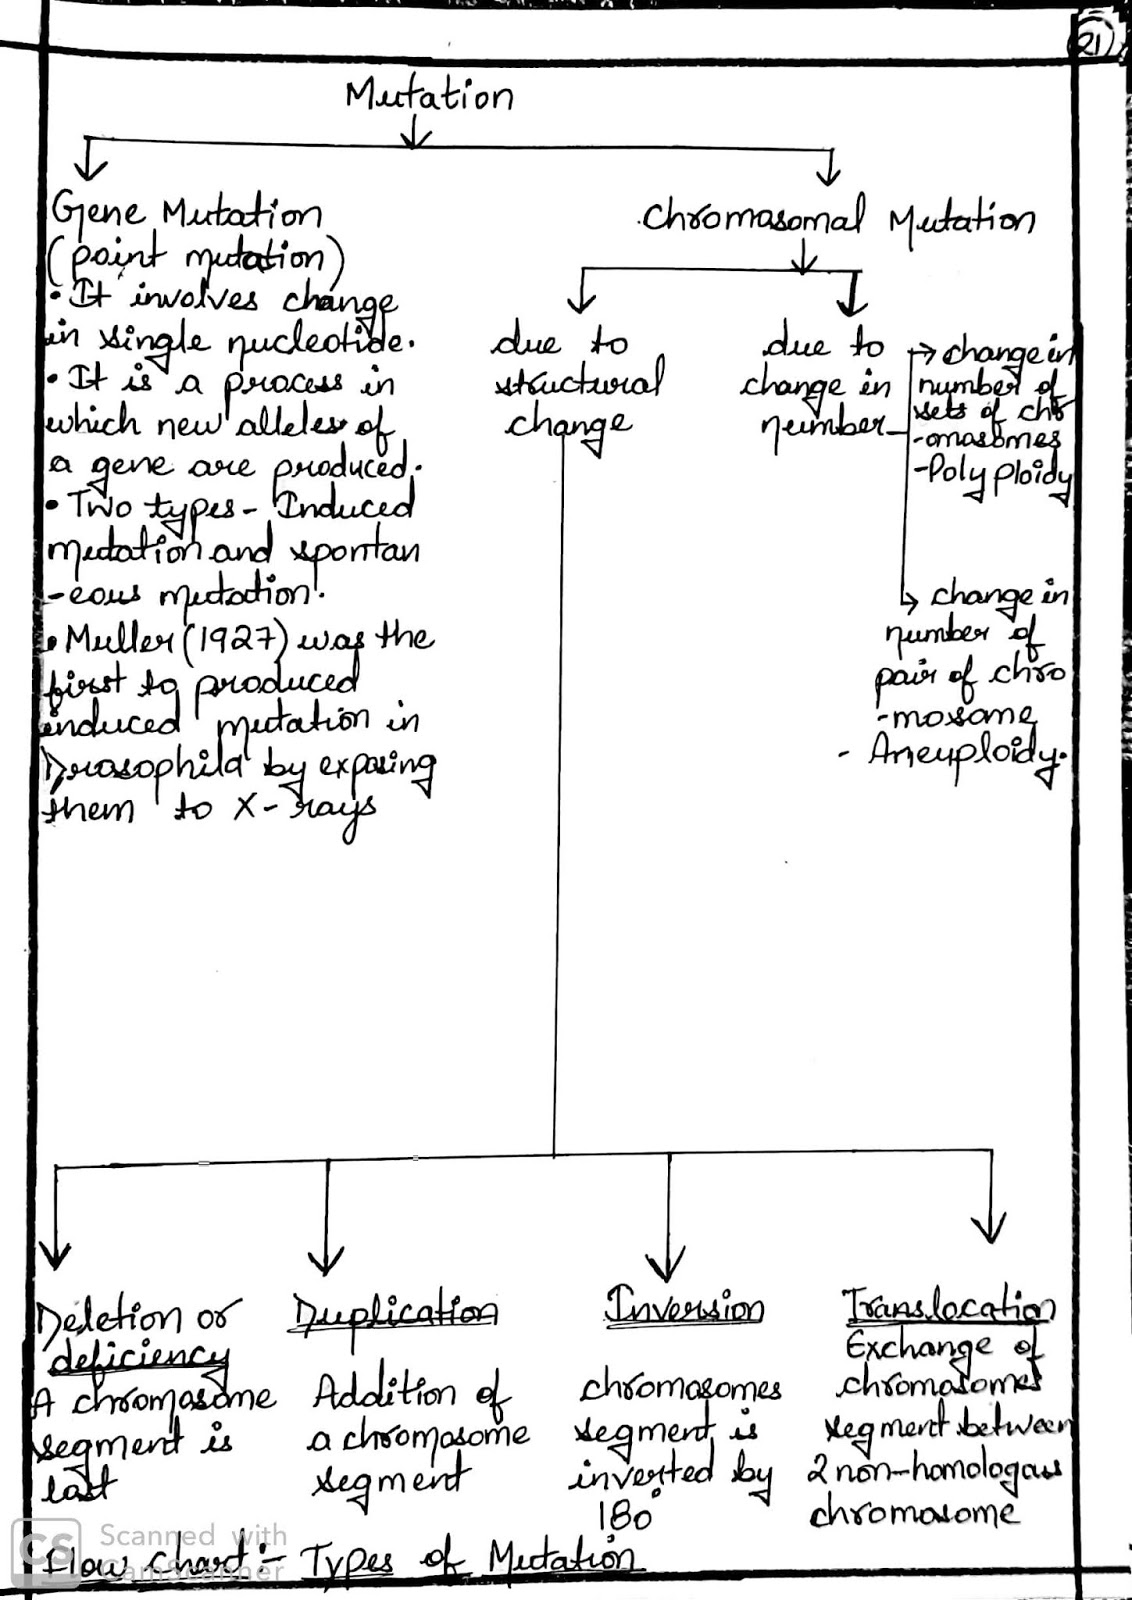 21
Mutation
Gene Mutation
(point mutation)
• It involves change
in single nucleotide.
• It is a process in
which new alleles of
a gene are produced.
• Two types - Induced
mutation and spontan
-eous mutation.
• Muller (1927) was the
first to produced
induced mutation in
Drosophila by exposing
them to X-rays
Chromasomal Mutation
due to
structural
change
due to
change in
number
→ change in
number of
sets of chr
-omasomes
- Poly ploidy
→ change in
number of
pair of chro
-mosome
- Aneuploidy.
Deletion or
deficiency
A chromasome
segment is
lost
Duplication
Addition of
a chromosome
segment
Inversion
chromasomes
segment is
inverted by
180°
Translocation
Exchange of
chromasomes
segment between
2 non-homologous
chromosome
Flow Chart :- Types of Mutation
CS Scanned with
CamScanner